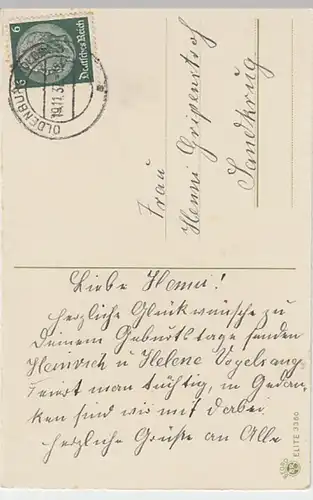 6 6
Deutsches Reich
OLDENBURG
19.11.3
Frau
Henni Gripenstroh
Sandkrug
Liebe Henni!
herzliche Glückwünsche zu
Deinem Geburtstage senden
Heinrich u Helene Vogelsang
Feiert man tüchtig, in Gedan-
ken sind wir mit dabei
herzliche Grüße an Alle
ELITE 3350